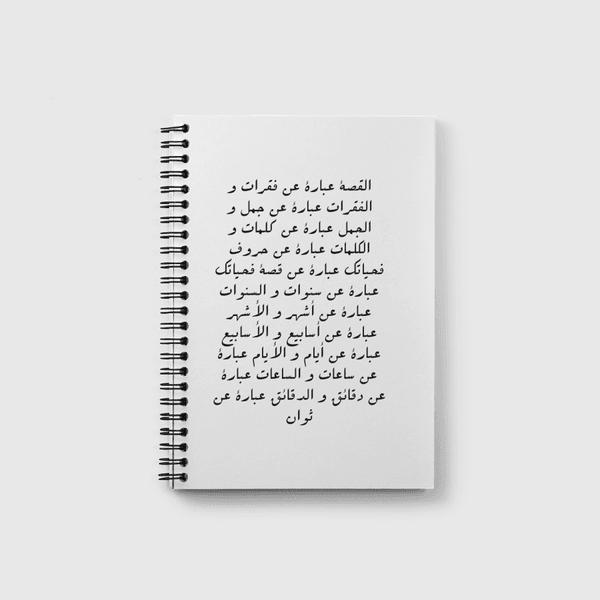 القصة عبارة عن فقرات و
الفقرات عبارة عن جمل و
الجمل عبارة عن كلمات و
الكلمات عبارة عن حروف
فحياتك عبارة عن قصة فحياتك
عبارة عن سنوات و السنوات
عبارة عن أشهر و الأشهر
عبارة عن أسابيع و الأسابيع
عبارة عن أيام و الأيام عبارة
عن ساعات و الساعات عبارة
عن دقائق و الدقائق عبارة عن
ثوان